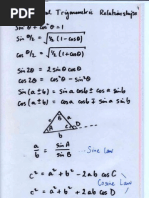 Trigometric Relationships
sin² θ + cos² θ = 1
sin θ/2 = √½ (1 - cos θ)
cos θ/2 = √½ (1 + cos θ)
sin 2θ = 2 sin θ cos θ
cos 2θ = cos² θ - sin² θ
sin (a ± b) = sin a cos b ± cos a sin b
cos (a ± b) = cos a cos b ∓ sin a sin b
a/b = sin A/sin B
Sine Law
c² = a² + b² - 2ab cos C
Cosine Law
c² = a² + b² + 2ab cos D